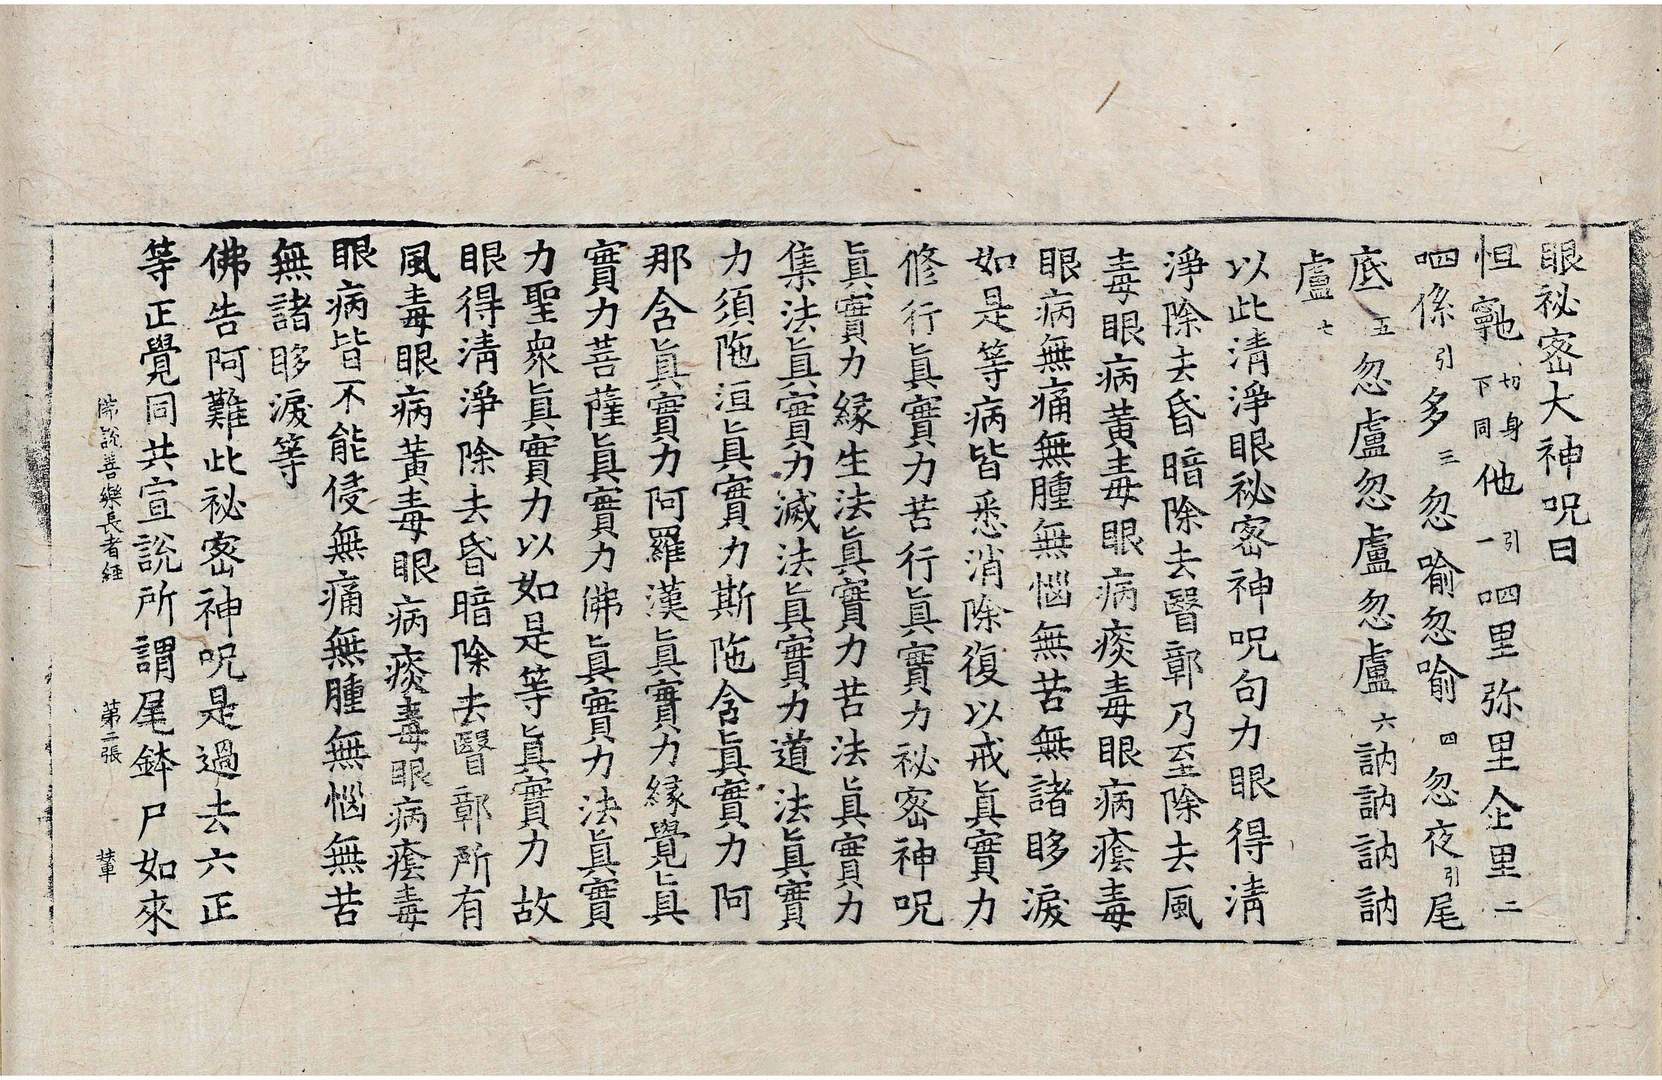 眼祕密大神呪曰
怛寧也切身下同他引一呬里弥里企里二
呬係引多三忽喻忽喻四忽夜引尾
底五忽盧忽盧忽盧六訥訥訥訥
盧七
以此清淨眼祕密神呪句力眼得清
淨除去昏暗除去瞖鄣乃至除去風
毒眼病黃毒眼病痰毒眼病癊毒
眼病無痛無腫無惱無苦無諸眵淚
如是等病皆悉消除復以戒眞實力
修行眞實力苦行眞實力祕密神呪
眞實力緣生法眞實力苦法眞實力
集法眞實力滅法眞實力道法眞實
力須陁洹眞實力斯陁含眞實力阿
那含眞實力阿羅漢眞實力緣覺眞
實力菩薩眞實力佛眞實力法眞實
力聖衆眞實力以如是等眞實力故
眼得清淨除去昏暗除去瞖鄣所有
風毒眼病黃毒眼病痰毒眼病癊毒
眼病皆不能侵無痛無腫無惱無苦
無諸眵淚等
佛告阿難此祕密神呪是過去六正
等正覺同共宣說所謂尾鉢尸如來
佛說善樂長者經 第二張 輦